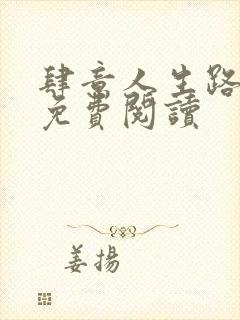 肆意人生路
免費閱讀
姜揚